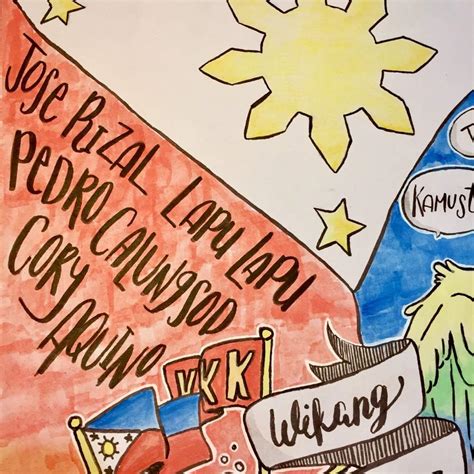 JOSE RIZAL LAPU LAPU
PEDRO CALUNGSOD
CORY AQUINO
KAMUST
KKK
Wikang